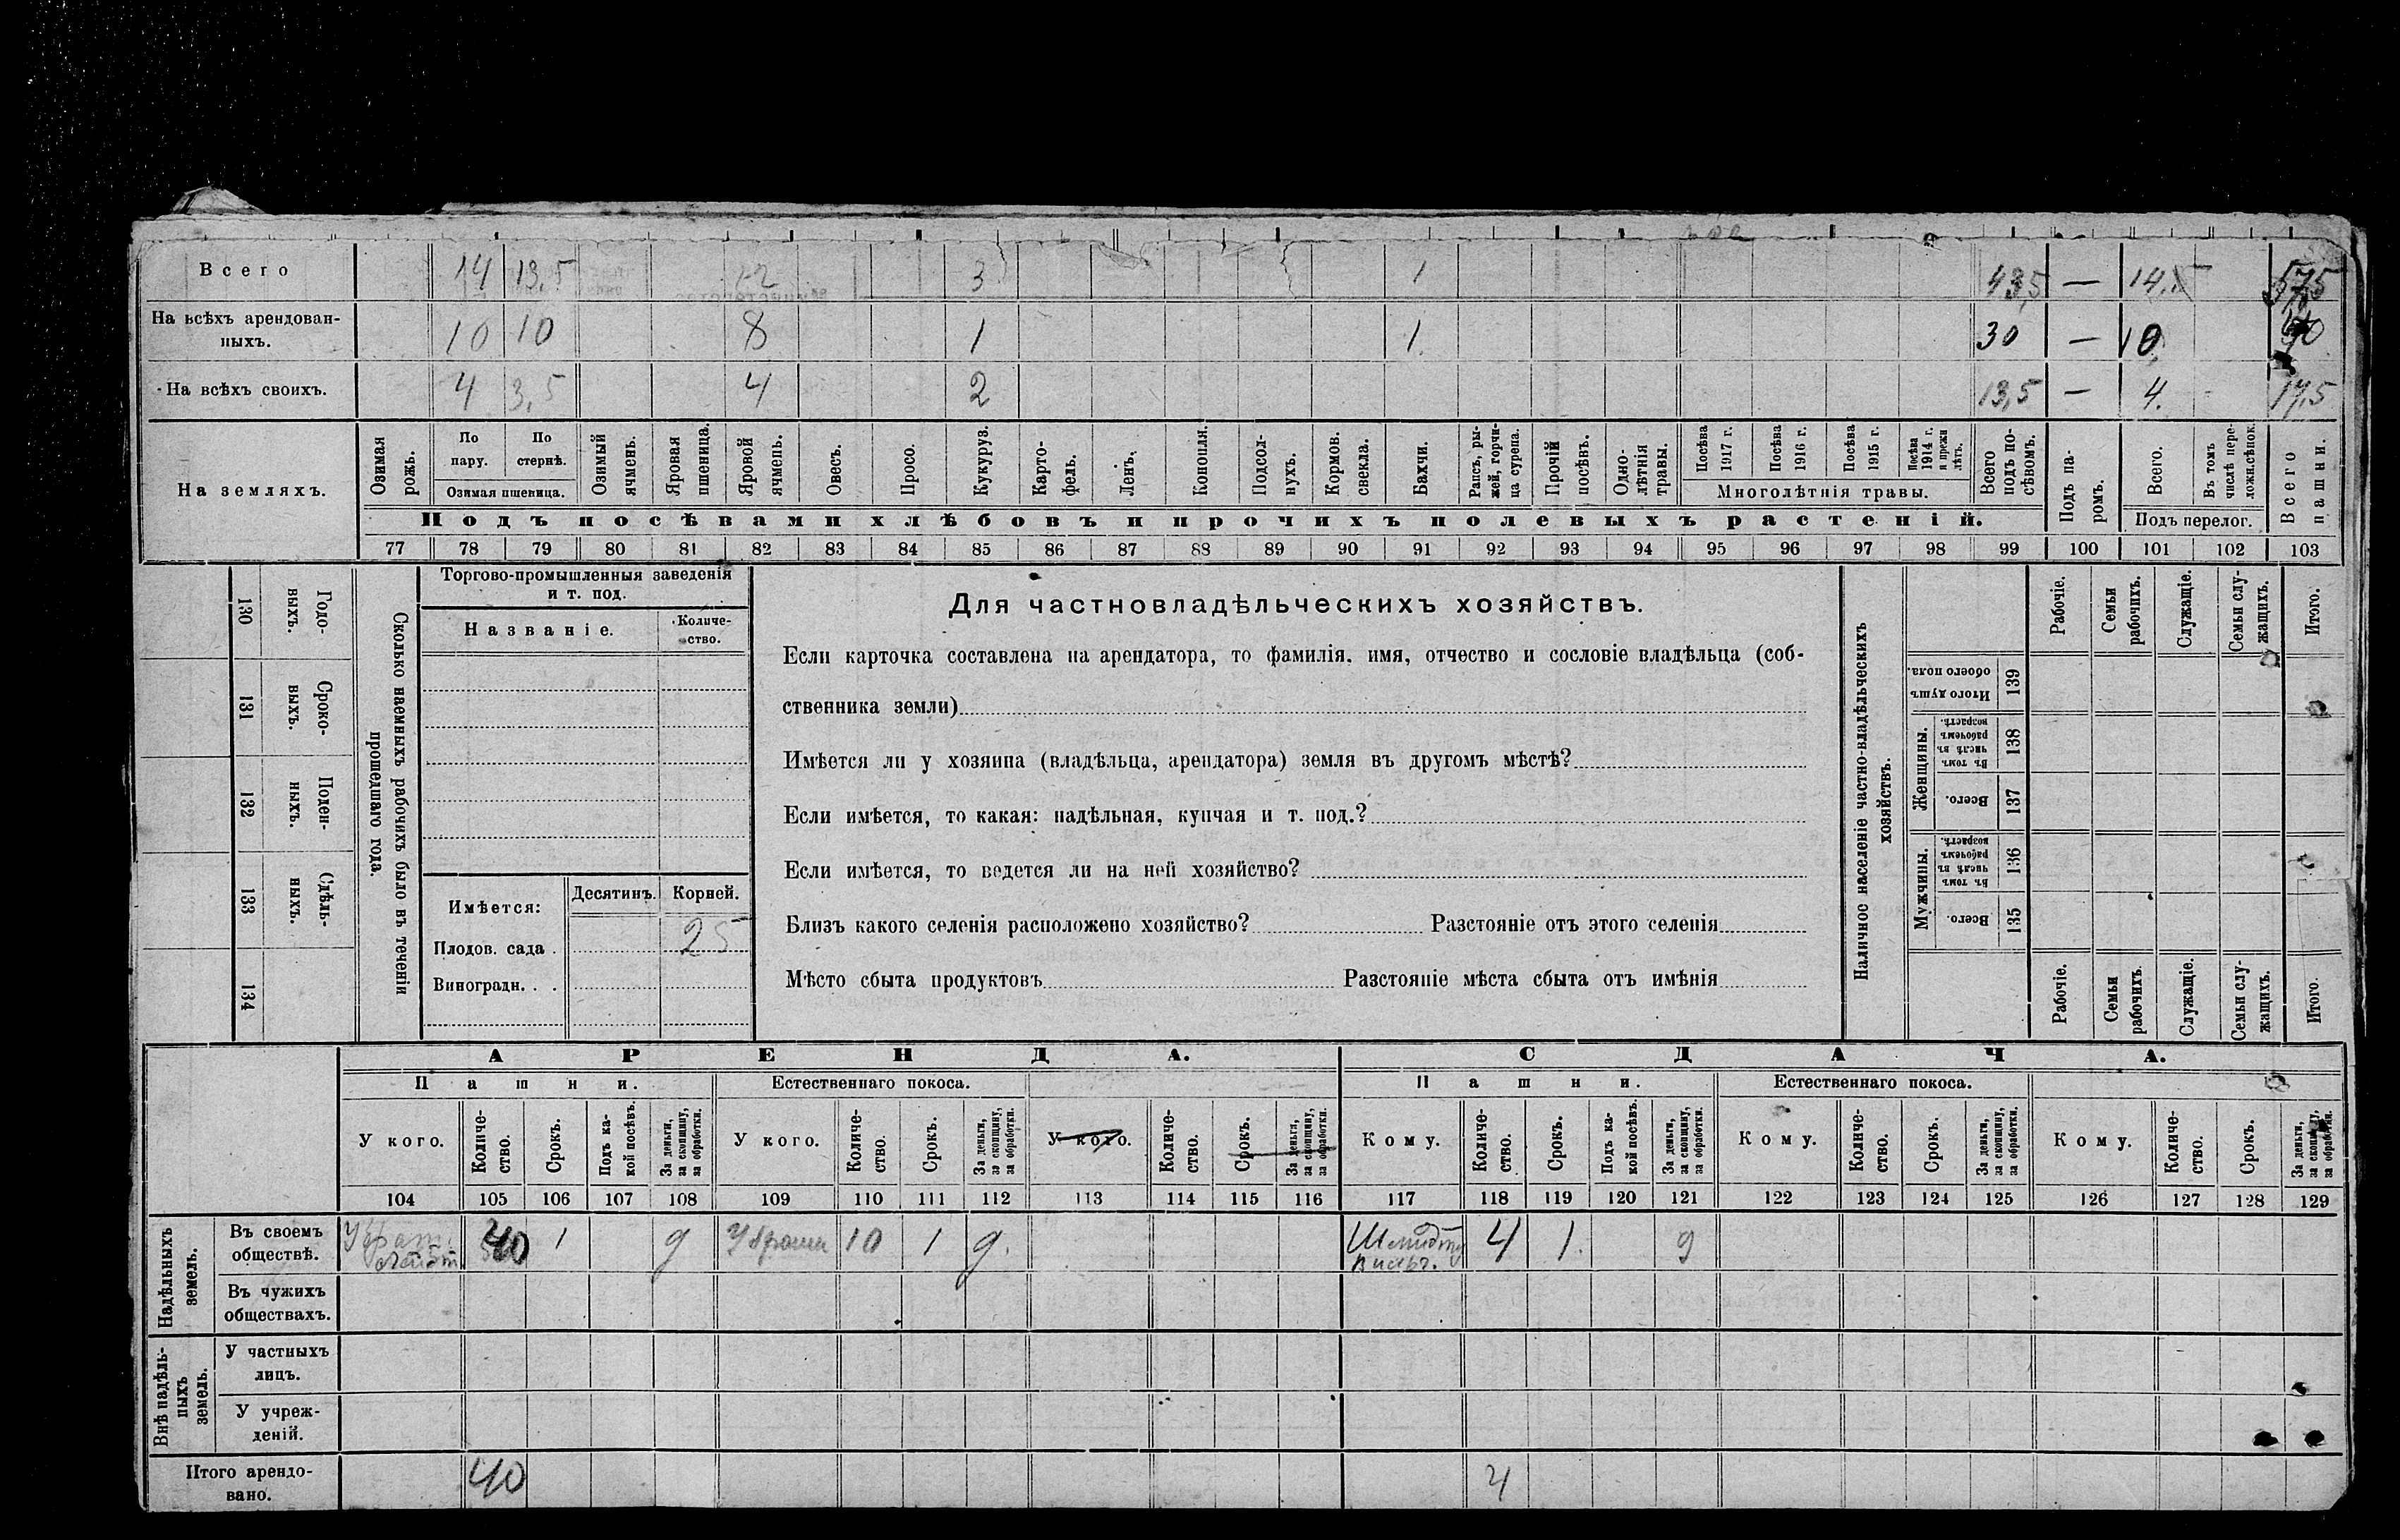 Всего 14 13,5 12 3 1 43,5 — 14
На всѣхъ арендован-
ныхъ. 10 10 8 1 1 30 — 10
На всѣхъ своихъ. 4 3,5 4 2 13,5 — 4. 17,5
На земляхъ.
Озимая рожь.
По пару.
По стернѣ.
Озимая пшеница.
Озимый ячмень.
Яровая пшеница.
Яровой ячмень.
Овесъ.
Просо.
Кукуруз.
Карто-
фель.
Ленъ.
Конопля.
Подсол-
нухъ.
Кормов.
свекла.
Бахчи.
Рапсъ, ры-
жей, горчи-
ца сурепа.
Прочій
посѣвъ.
Одно-
лѣтнія
травы.
Посѣва
1917 г.
Посѣва
1916 г.
Посѣва
1915 г.
Посѣва
1914 г.
и прежн
лѣтъ.
Многолѣтнія травы.
Всего
подъ по-
сѣвомъ.
Подъ па-
ромъ.
Всего.
Въ томъ
числѣ пере-
ложн.сѣнок.
Подъ перелог.
Всего
пашни.
Подъ посѣвами хлѣбовъ и прочихъ полевыхъ растеній.
77 78 79 80 81 82 83 84 85 86 87 88 89 90 91 92 93 94 95 96 97 98 99 100 101 102 103
130 Годо-
выхъ.
131 Сроко-
выхъ.
132 Поден-
ныхъ.
133 Сдѣль-
ныхъ.
134
Сколько наемныхъ рабочихъ было въ теченіи
прошедшаго года.
Торгово-промышленныя заведенія
и т. под.
Названіе.
Количе-
ство.
Имѣется:
Десятинъ.
Корней.
Плодов. сада . 25
Виноградн. . .
Для частновладѣльческихъ хозяйствъ.
Если карточка составлена на арендатора, то фамилія, имя, отчество и сословіе владѣльца (соб-
ственника земли)
Имѣется ли у хозяина (владѣльца, арендатора) земля въ другомъ мѣстѣ?
Если имѣется, то какая: надѣльная, купчая и т. под.?
Если имѣется, то ведется ли на ней хозяйство?
Близъ какого селенія расположено хозяйство? Разстояніе отъ этого селенія
Мѣсто сбыта продуктовъ Разстояніе мѣста сбыта отъ имѣнія
Наличное населеніе частно-владѣльческихъ
хозяйствъ.
Рабочіе.
Семьи
рабочихъ.
Служащіе.
Семьи слу-
жащихъ.
Итого.
Итого душъ
обоего пола.
139
Женщины.
Въ томъ
числѣ въ
рабочемъ
возрастѣ.
138
Всего.
137
Мужчины.
Въ томъ
числѣ въ
рабочемъ
возрастѣ.
136
Всего.
135
Рабочіе.
Семьи
рабочихъ.
Служащіе.
Семьи слу-
жащихъ.
Итого.
АРЕНДА. СДАЧА.
Пашни. Естественнаго покоса. Пашни. Естественнаго покоса.
У кого.
Количе-
ство.
Срокъ.
Подъ ка-
кой посѣвъ.
За деньги,
за скопщину,
за обработки.
У кого.
Количе-
ство.
Срокъ.
За деньги,
за скопщину,
за обработки.
У кого.
Количе-
ство.
Срокъ.
За деньги,
за скопщину,
за обработки.
Кому.
Количе-
ство.
Срокъ.
Подъ ка-
кой посѣвъ.
За деньги,
за скопщину,
за обработки.
Кому.
Количе-
ство.
Срокъ.
За деньги,
за скопщину,
за обработки.
Кому.
Количе-
ство.
Срокъ.
За деньги,
за скопщину,
за обработки.
104 105 106 107 108 109 110 111 112 113 114 115 116 117 118 119 120 121 122 123 124 125 126 127 128 129
Надѣльныхъ
земель.
Въ своемъ
обществѣ. 40 1 д 10 1 д. 4 1. д
Въ чужихъ
обществахъ.
Внѣ надѣль-
ныхъ
земель.
У частныхъ
лицъ.
У учреж-
деній.
Итого арендо-
вано. 40 4